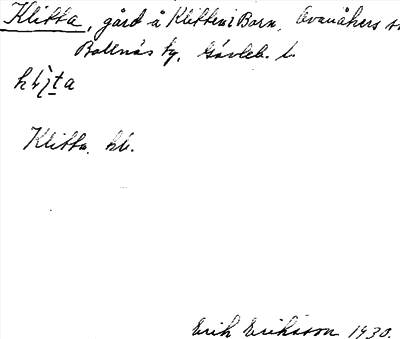 Klitta, gård å Klitten i Barn, Ovanåkers s
Bollnäs tg, Gävleb. l.
Klitta. hb.
Erik Eriksson 1930.